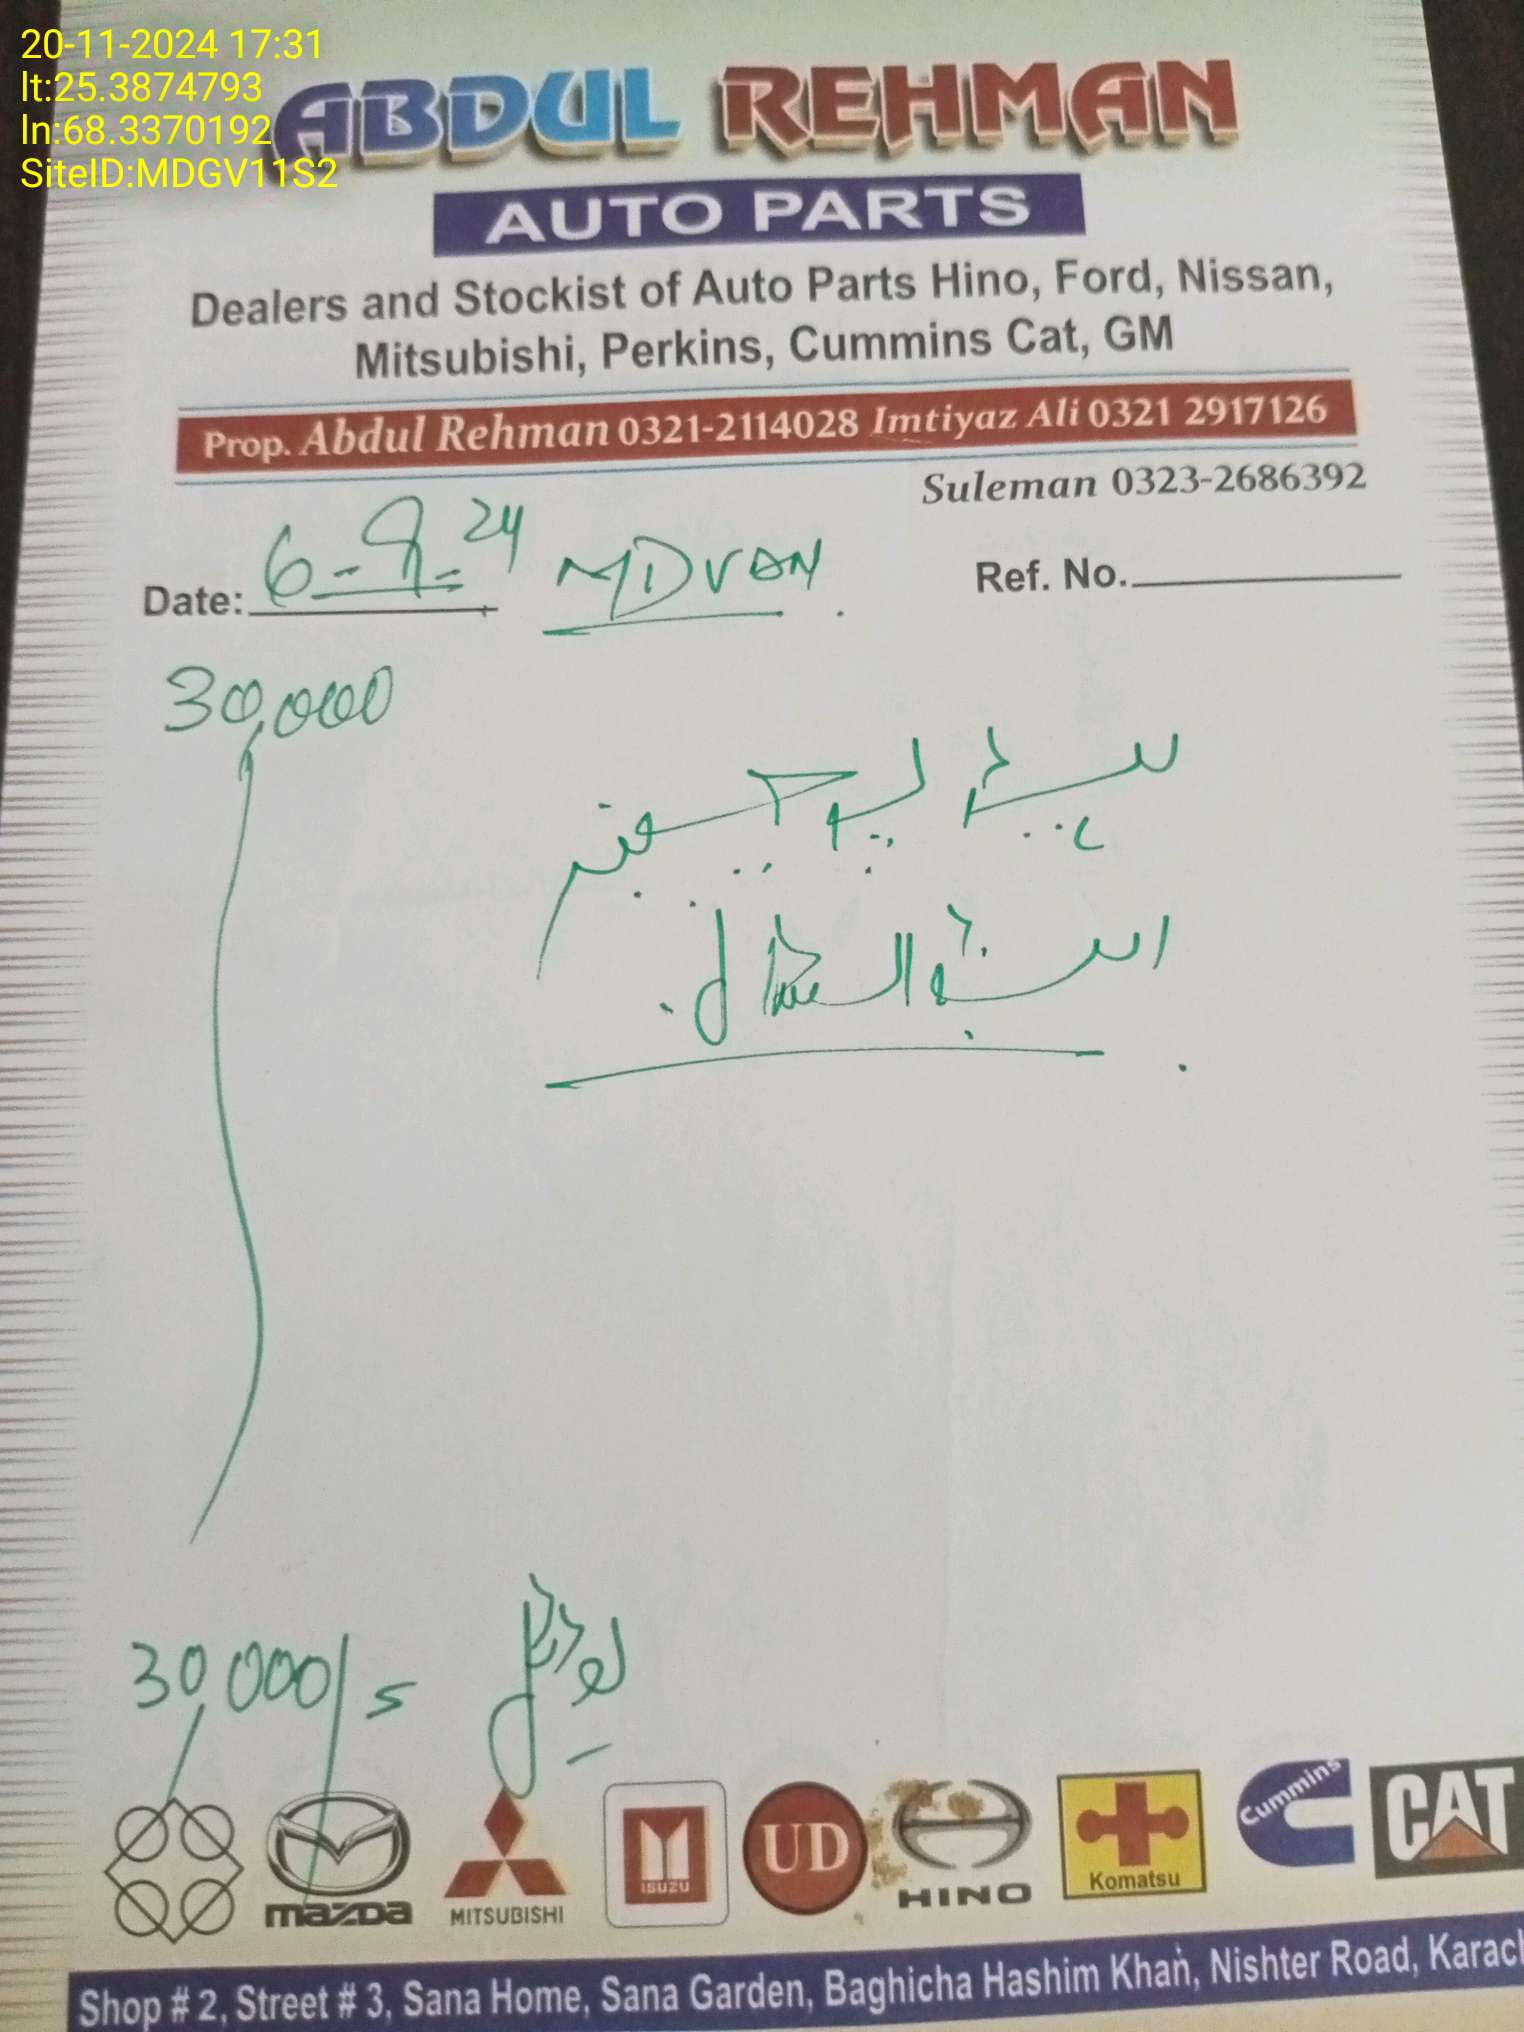 20-11-2024 17:31
lt:25.3874793
ln:68.3370192
SiteID:MDGV11S2
ABDUL REHMAN
AUTO PARTS
Dealers and Stockist of Auto Parts Hino, Ford, Nissan,
Mitsubishi, Perkins, Cummins Cat, GM
Prop. Abdul Rehman 0321-2114028 Imtiyaz Ali 0321 2917126
Suleman 0323-2686392
Date: 6-9-24 MDVAN Ref. No.
30,000
30,000/=
mazda
MITSUBISHI
ISUZU
UD
HINO
Komatsu
Cummins
CAT
Shop # 2, Street # 3, Sana Home, Sana Garden, Baghicha Hashim Khan, Nishter Road, Karach